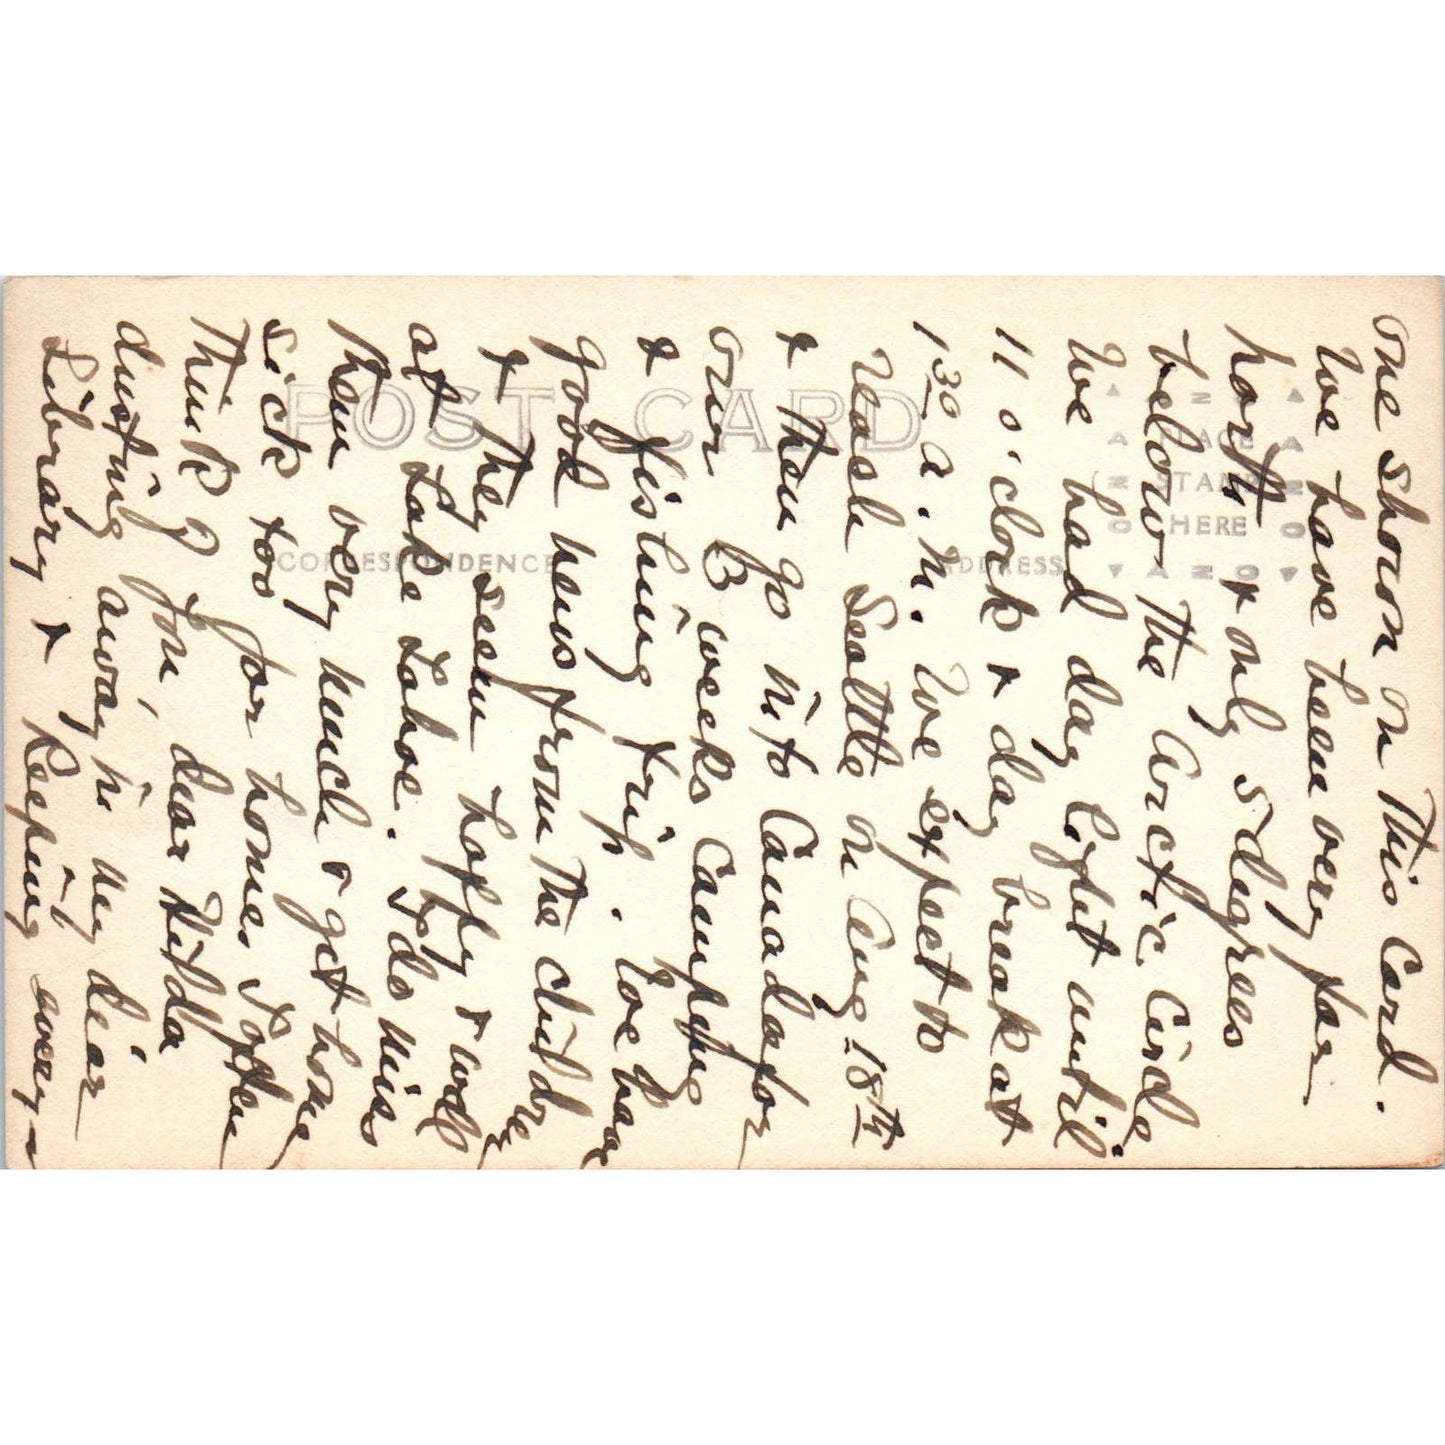 one shown on this Card.
We have been very far
north & only 5 degrees
below the Arctic Circle.
We had day light until
11 o'clock & day break at
1 30 a.m. We expect to
reach Seattle on Aug 18th
& then go into Canada for
our 3 weeks Camping
& fishing trip. We have
good news from the children
& they seem happy & well
at Lake Tahoe. I do miss
them very much & get home
sick too for home. I often
think of you, dear Hilda
dusting away in my dear
Library & keeping every-
POST CARD
CORRESPONDENCE
ADDRESS
STAMP
HERE
AZO